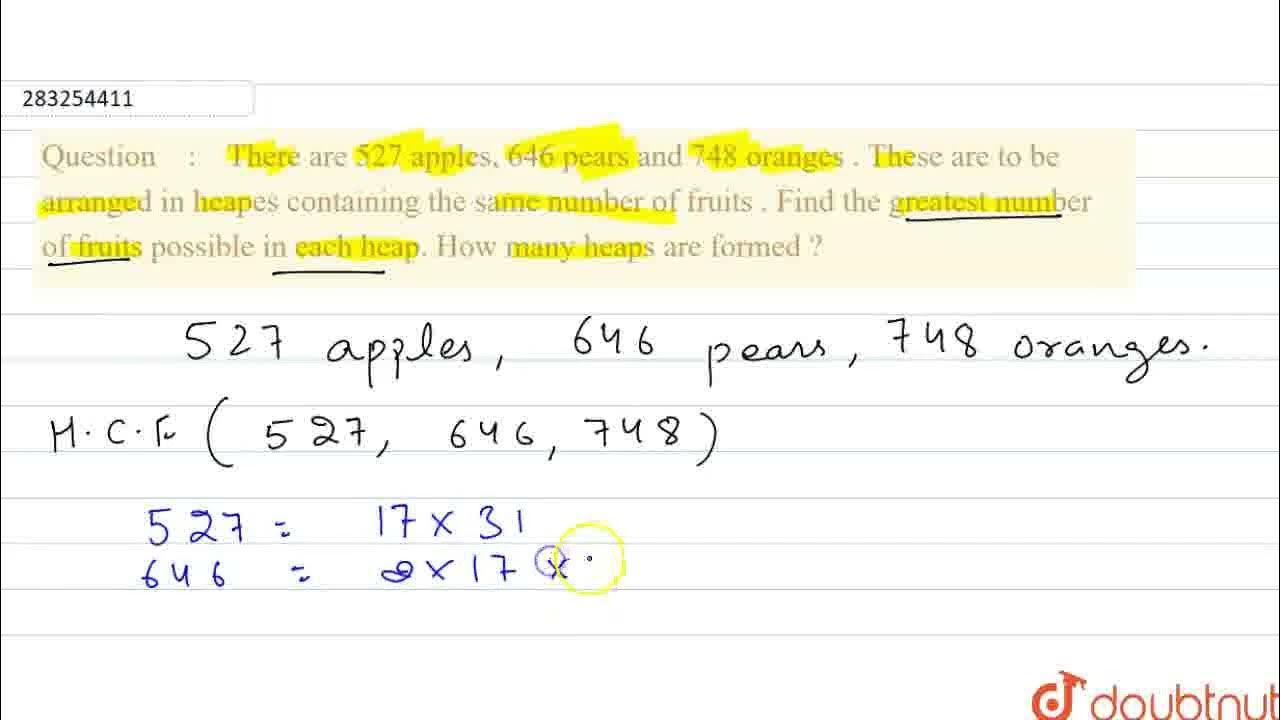 283254411
Question : There are 527 apples, 646 pears and 748 oranges . These are to be
arranged in heapes containing the same number of fruits . Find the greatest number
of fruits possible in each heap. How many heaps are formed ?
527 apples, 646 pears, 748 oranges.
H.C.F. ( 527, 646, 748 )
527 = 17 × 31
646 = 2 × 17 ×
doubtnut